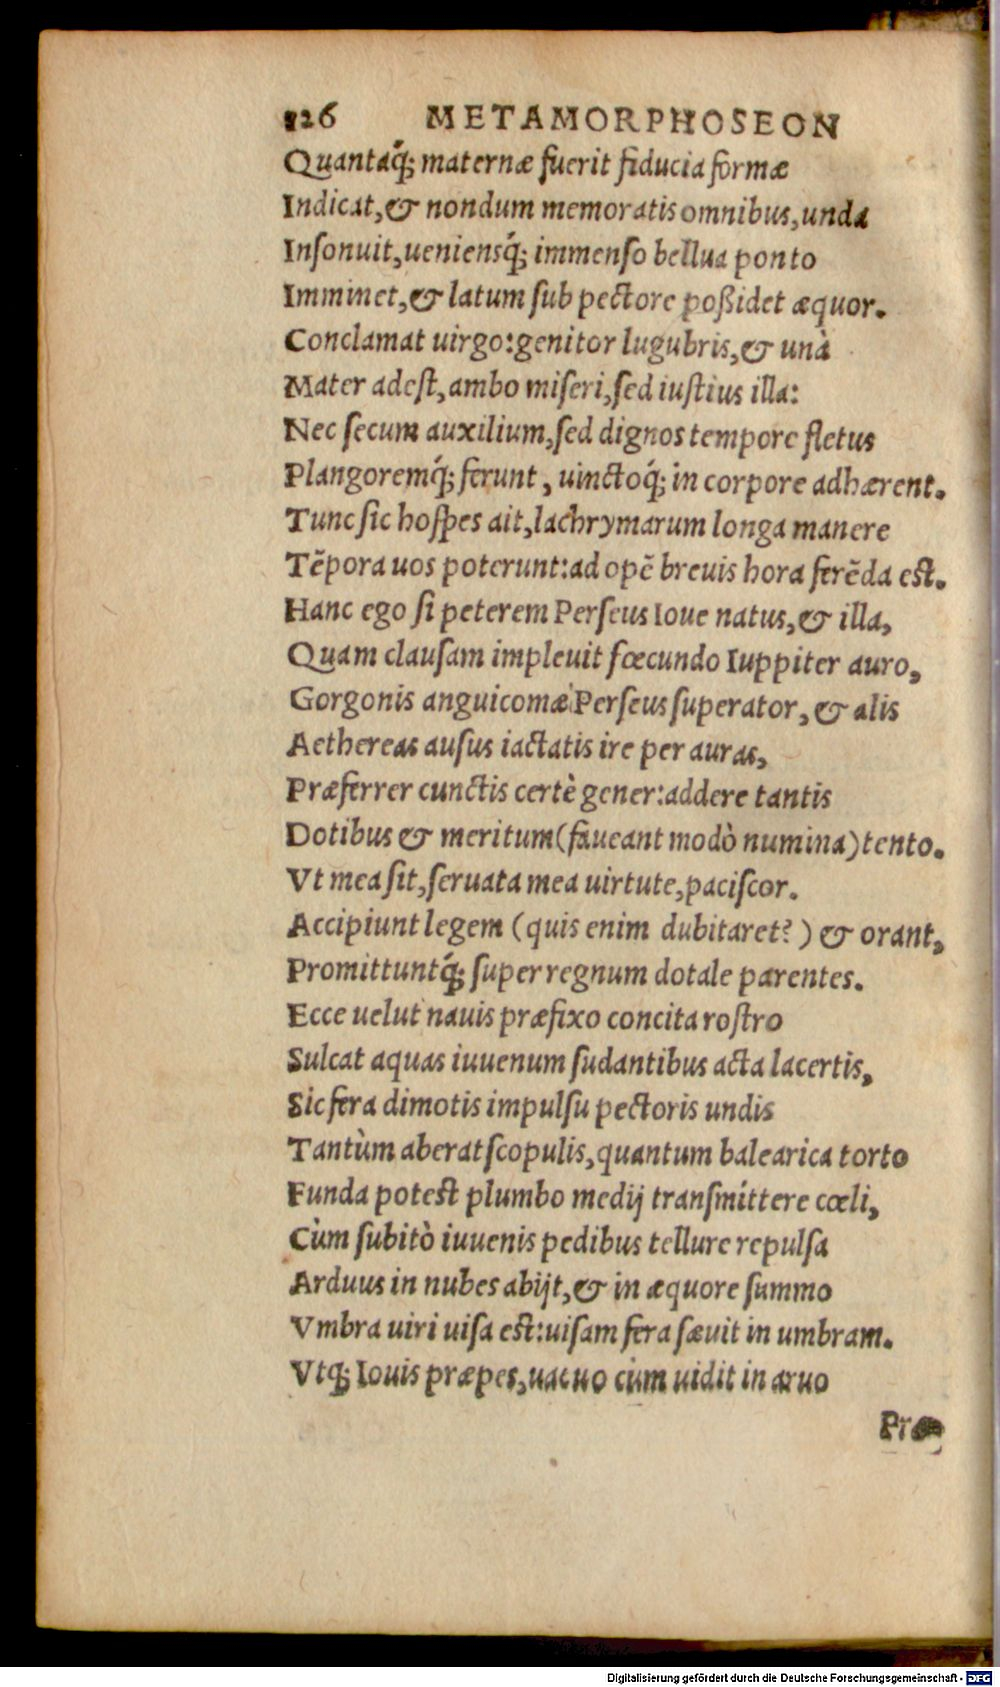 126 METAMORPHOSEON
Quantaq́; maternæ fuerit fiducia formæ
Indicat,& nondum memoratis omnibus,unda
Inſonuit,ueniensq́; immenſo bellua ponto
Imminet,& latum ſub pectore poßidet æquor.
Conclamat uirgo:genitor lugubris,& unà
Mater adeſt,ambo miſeri,ſed iuſtius illa:
Nec ſecum auxilium,ſed dignos tempore fletus
Plangoremq́; ferunt, uinctoq́; in corpore adhærent.
Tunc ſic hoſpes ait,lachrymarum longa manere
Tẽpora uos poterunt:ad opẽ breuis hora ferẽda eſt.
Hanc ego ſi peterem Perſeus Ioue natus,& illa,
Quam clauſam impleuit fœcundo Iuppiter auro,
Gorgonis anguicomæ Perſeus ſuperator, & alis
Aethereas auſus iactatis ire per auras,
Præferrer cunctis certè gener:addere tantis
Dotibus & meritum(faueant modò numina)tento.
Vt mea ſit,ſeruata mea uirtute,paciſcor.
Accipiunt legem (quis enim dubitaret?) & orant,
Promittuntq́; ſuper regnum dotale parentes.
Ecce uelut nauis præfixo concita roſtro
Sulcat aquas iuuenum ſudantibus acta lacertis,
Sic fera dimotis impulſu pectoris undis
Tantùm aberat ſcopulis,quantum balearica torto
Funda poteſt plumbo medij tranſmittere cœli,
Cùm ſubitò iuuenis pedibus tellure repulſa
Arduus in nubes abijt,& in æquore ſummo
Vmbra uiri uiſa eſt:uiſam fera ſæuit in umbram.
Vtq; Iouis præpes,uacuo cùm uidit in aruo
Præ
Digitalisierung gefördert durch die Deutsche Forschungsgemeinschaft - DFG